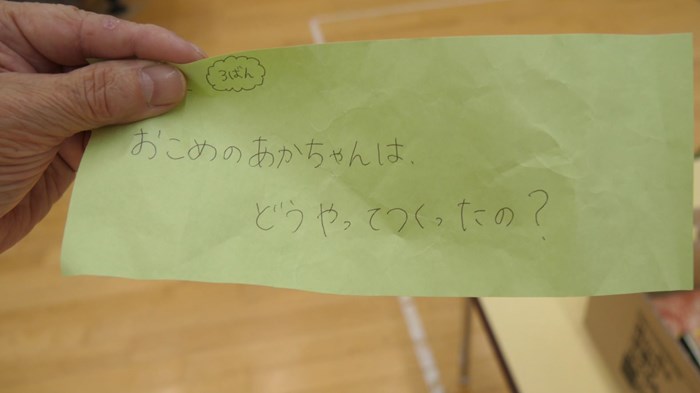 3ばん
おこめのあかちゃんは、
どうやってつくったの?